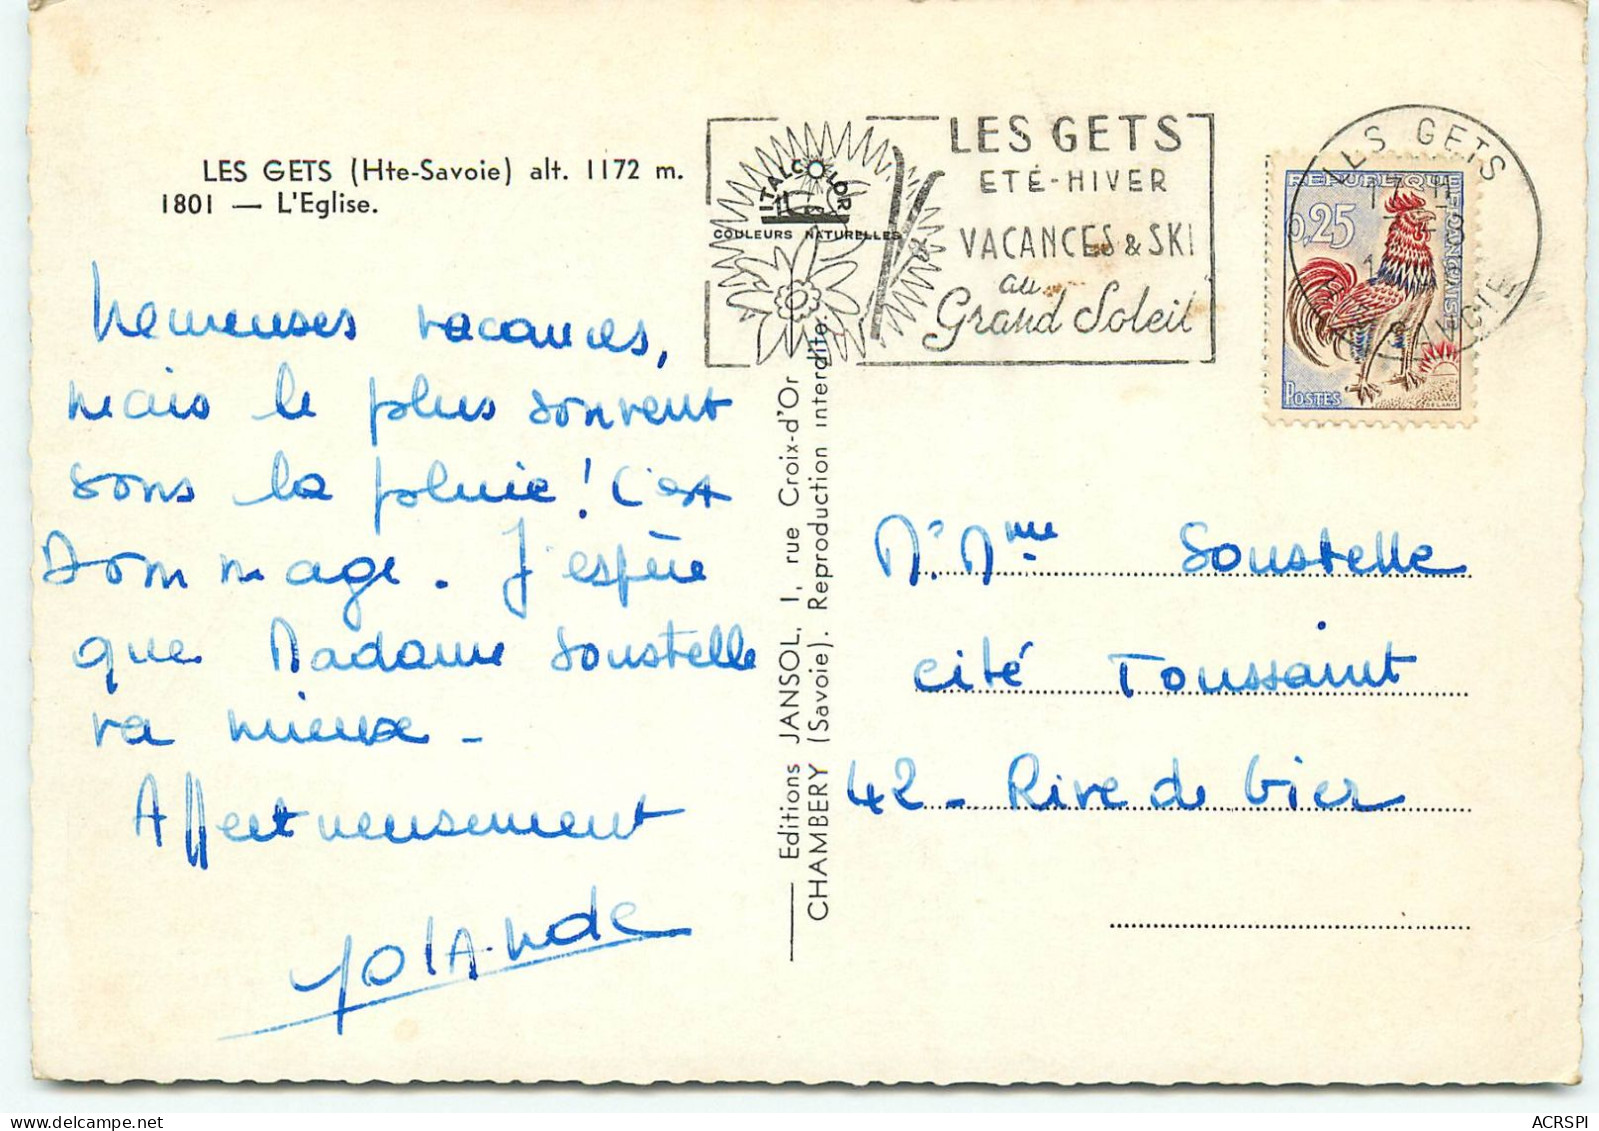 LES GETS (Hte-Savoie) alt. 1172 m.
1801 — L'Eglise.
heureuses vacances,
mais le plus souvent
sous la pluie ! C'est
Dommage. J'espère
que Madame Soustelle
va mieux -
Affectueusement
Yolande
ITALCOLOR
COULEURS NATURELLES
LES GETS
ETÉ-HIVER
VACANCES & SKI
au
Grand Soleil
LES GETS
HTE SAVOIE
REPUBLIQUE
FRANÇAISE
0,25
POSTES
DECARIS
Editions JANSOL, 1, rue Croix-d'Or
CHAMBERY (Savoie). Reproduction interdite.
M. Mme Soustelle
cité Toussaint
42 - Rive de Gier
ACRSPI